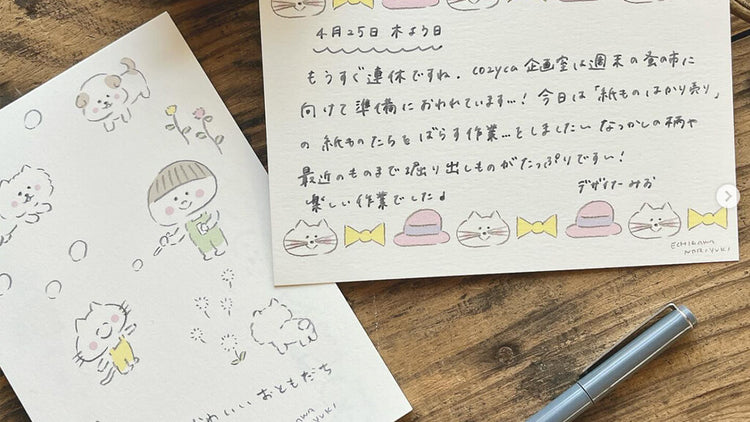 4月25日 木よう日
もうすぐ連休ですね。cozyca 企画室は週末の蚤の市に
向けて準備におわれています…！今日は「紙ものはかり売り」
の紙ものたちをばらす作業…をしました！なつかしの柄や
最近のものまで掘り出しものがたっぷりです！
楽しい作業でした♪
デザイナーみお
ECHIGAWA
NORIYUKI
かわいいおともだち